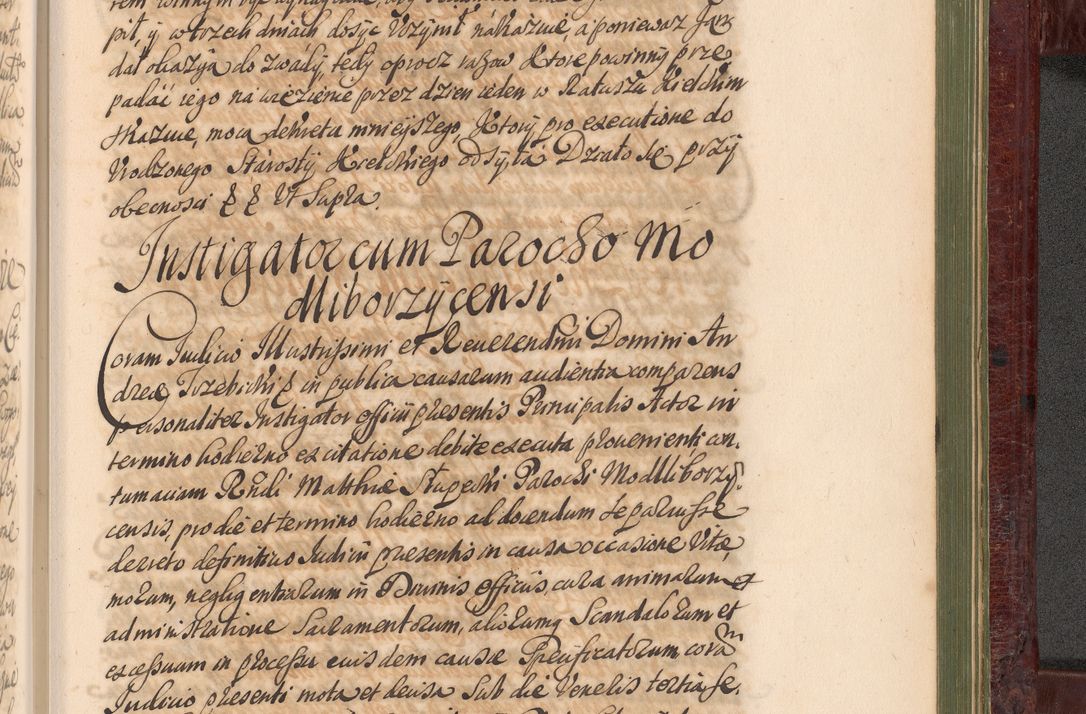 pił, y w trzech dniach dosyc Uczynił nakazuie, a poniewaz
dał okazyą do zwady, tedy oprocz razow ktore powinny prze
padać iego na więzienie przez dzien ieden w Ratuszu Kielckim
skazuie, moca dekretu mnieyszego, ktory pro executione do
Urodzonego Starosty Kieleckiego odsyła Działo się przy
obecnosci Ut Supra.
Instigator cum Parocho Mo
dliborzycensi
Coram Iudicio Illustrissimi et Reverendissimi Domini An
dreæ Trzebicki in publica causarum audientia comparens
personaliter Instigator officii præsentis Principalis Actor in
termino hodierno ex citatione debite executa provenienti con
tumaciam Rndi Matthiæ Słupecki Parochi Modliborzy
censis, pro die et termino hodierno ad docendum se paruisse
decreto definitivo Iudicii præsentis in causa occasione Vitæ,
morum, negligentiarum in Divinis officiis, cura animarum et
administratione Sacramentorum, aliorumq Scandalorum et
excessuum in processu eius dem causæ Specificatorum coram
Iudicio præsenti mota et decisa Sub die Veneris tertia fe